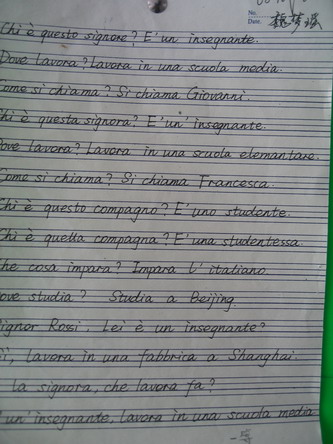 No.
Date.
Chi è questo signore? E' un insegnante.
Dove lavora? Lavora in una scuola media.
Come si chiama? Si chiama Giovanni.
Chi è questa signora? E' un' insegnante.
Dove lavora? Lavora in una scuola elemantare.
Come si chiama? Si chiama Francesca.
Chi è questo compagno? E' uno studente.
Chi è quella compagna? E' una studentessa.
Che cosa impara? Impara l' italiano
ove studia? Studia a Beijing.
ignor Rossi, Lei è un insegnante?
ì, lavora in una fabbrica a Shanghai.
la signora, che lavora fa?
un' insegnante, lavora in una scuola media